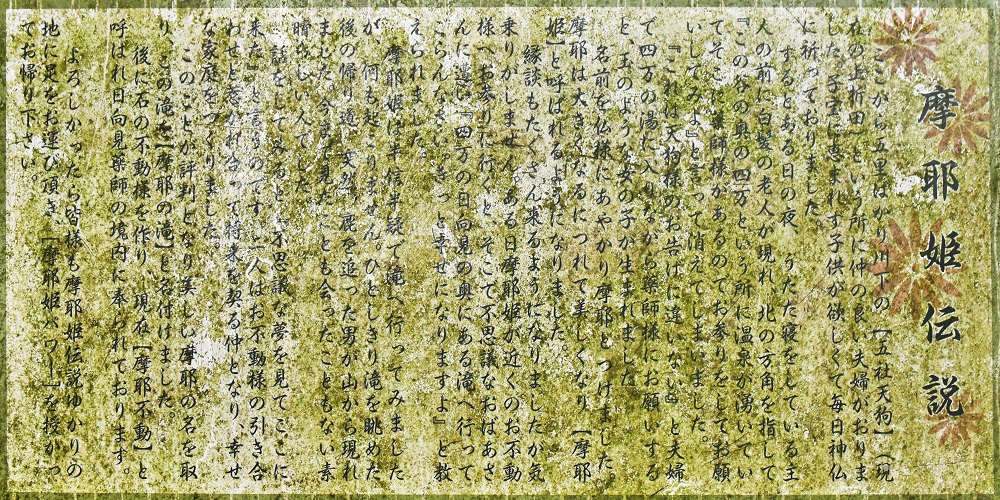 摩耶姫伝説
ここから五里ばかり川下の【五社天狗】(現
在の上折田)という所に仲の良い夫婦がおりま
した。子宝に恵まれず子供が欲しくて毎日神仏
に祈っておりました。
するとある日の夜 うたた寝をしている主
人の前に白髪の老人が現れ、北の方角を指して
『この谷の奥の四万という所に温泉が湧いてい
てそこに薬師様があるのでお参りをしてお願
いしてみよ』と言って消えてしまいました。
『これは天狗様のお告げに違いない』と夫婦
で四万の湯に入りながら薬師様にお願いする
と玉のような女の子が生まれました。
名前を仏様にあやかり摩耶とつけました。
摩耶は大きくなるにつれて美しくなり【摩耶
姫】と呼ばれるようになりました。
縁談もたくさん来るようになりましたが気
乗りがしません。ある日摩耶姫が近くのお不動
様へお参りに行くと、そこで不思議なおばあさ
んに逢い『四万の日向見の奥にある滝へ行って
ごらんなさい。きっと幸せになりますよ』と教
えられました。
摩耶姫は半信半疑で滝へ行ってみました
が、何も起こりません。ひとしきり滝を眺めた
後の帰り道、突然、鹿を追った男が山から現れ
ました。今まで見たことも会ったこともない素
晴らしい人でした。
話をしてみると『不思議な夢を見て、ここに
来た』と言うのです。二人はお不動様の引き合
わせと惹かれ合って将来を契る仲となり、幸せ
な家庭をつくりました。
このことが評判となり美しい摩耶の名を取
り、この滝を【摩耶の滝】と名付けました。
後に石の不動様を作り、現在【摩耶不動】と
呼ばれ日向見薬師の境内に奉られております。
よろしかったら皆様も摩耶姫伝説ゆかりの
地に足をお運び頂き【摩耶姫パワー】を授かっ
てお帰り下さい。